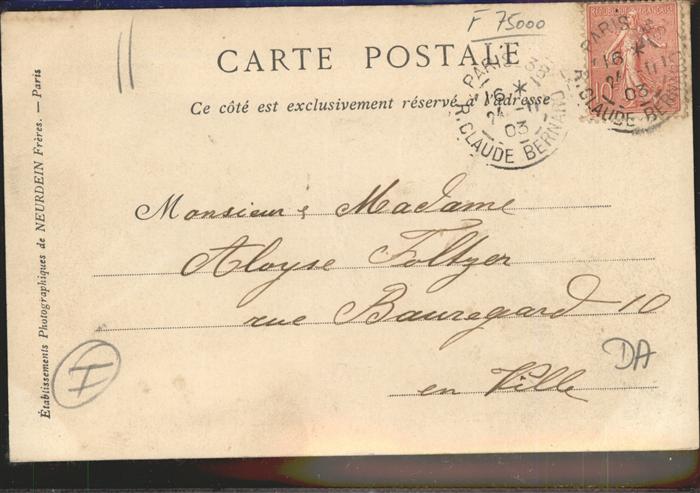 F 75000
CARTE POSTALE
Ce côté est exclusivement réservé à l'adresse
PARIS
16 *
24 - 11
03
R. CLAUDE BERNARD
RÉPUBLIQUE FRANÇAISE
10
PARIS
16 *
24 11
03
R. CLAUDE BERNARD
Monsieur, Madame
Aloyse Foltzer
rue Bauregard 10
en Ville
DA
H
Établissements Photographiques de NEURDEIN Frères. — Paris